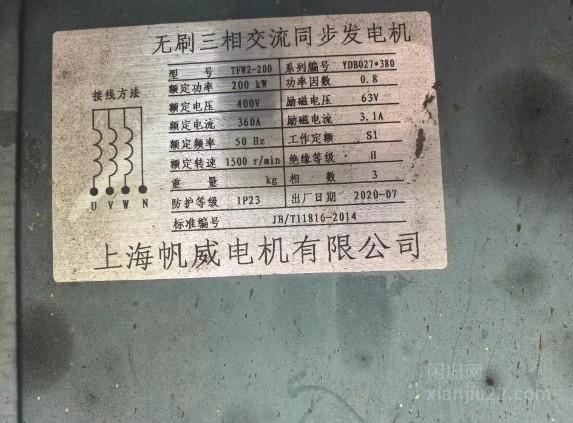 无刷三相交流同步发电机
型 号 TFW2-200 系列编号 YDB027*380
额定功率 200 kW 功率因数 0.8
接线方法
额定电压 400V 励磁电压 63V
额定电流 360A 励磁电流 3.1A
额定频率 50 Hz 工作定额 S1
额定转速 1500 r/min 绝缘等级 H
重 量 kg 相 数 3
U V W N
防护等级 IP23 出厂日期 2020-07
标准编号 JB/T11816-2014
上海帆威电机有限公司
闲旧网
xianjiu22.com